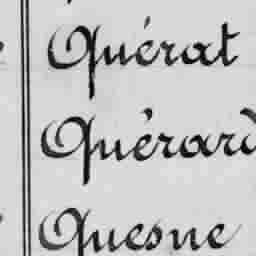 Quérat
Quérard
Quesne